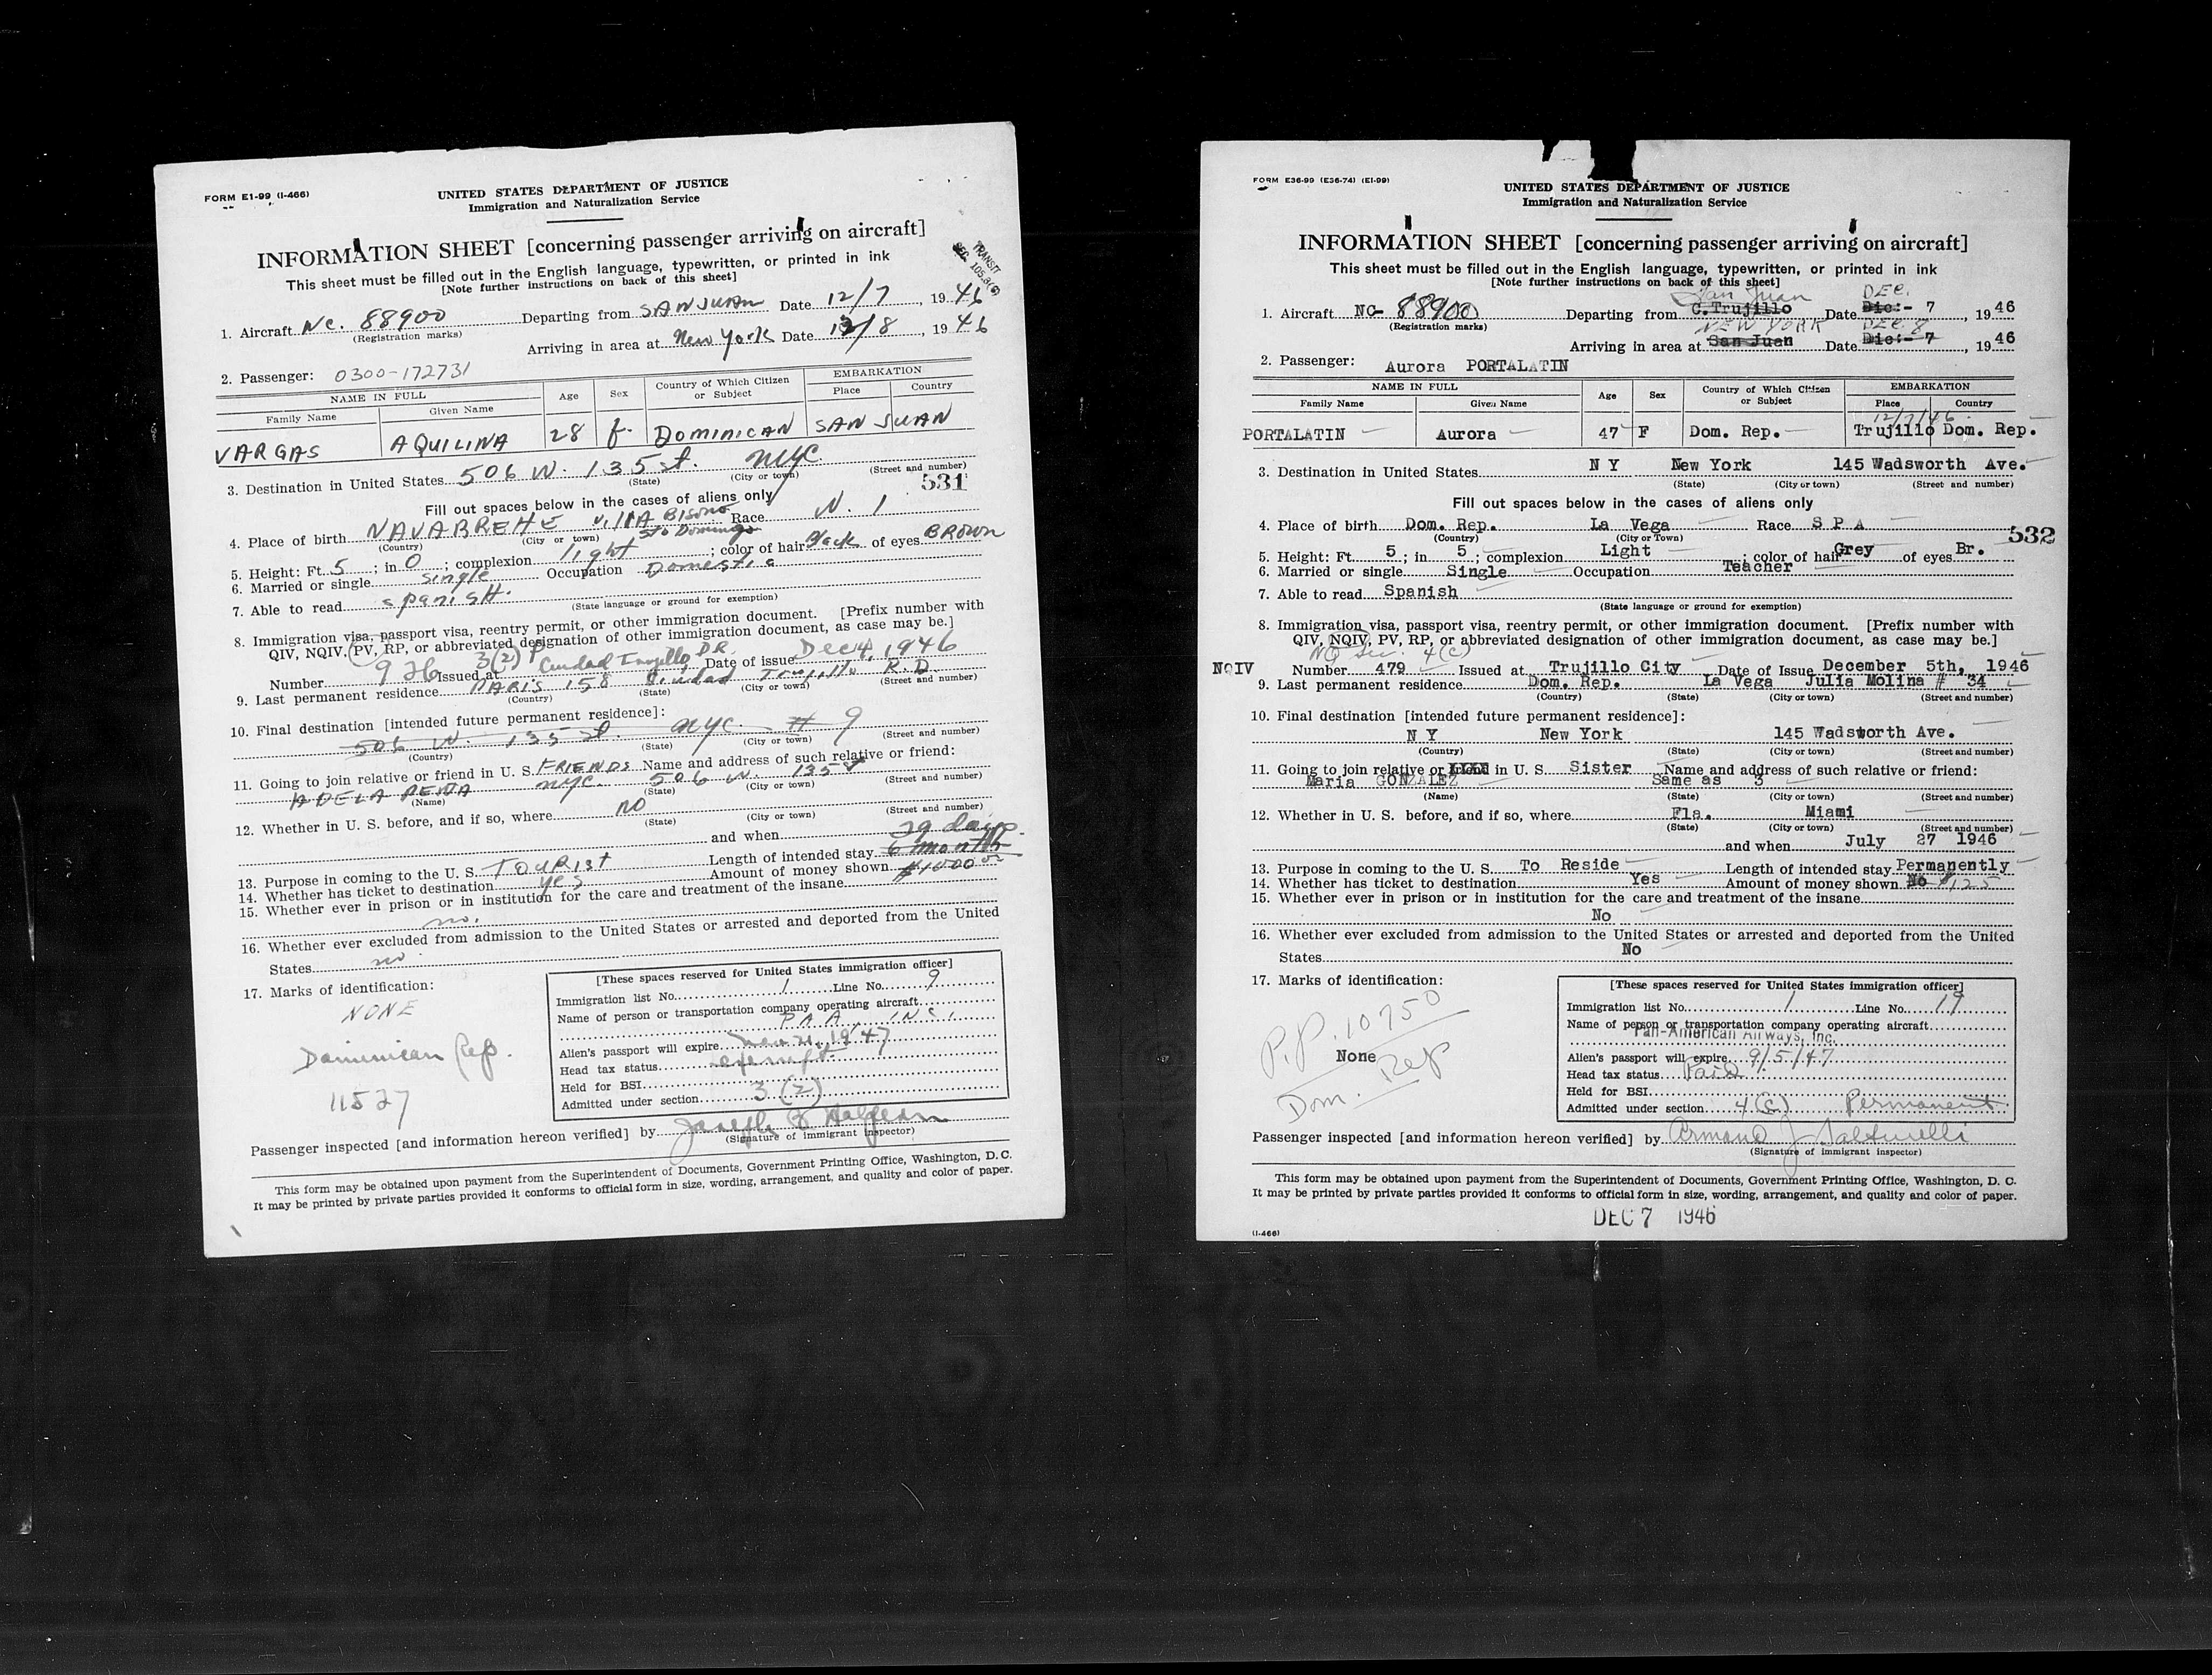 FORM E1-99 (I-466)
UNITED STATES DEPARTMENT OF JUSTICE
Immigration and Naturalization Service
INFORMATION SHEET [concerning passenger arriving on aircraft]
This sheet must be filled out in the English language, typewritten, or printed in ink
[Note further instructions on back of this sheet]
TRANSIT
SEC. 105.3(6)
1. Aircraft Nc. 88900 Departing from SAN JUAN Date 12/7, 1946
(Registration marks)
Arriving in area at New York Date 12/8, 1946
2. Passenger: 0300-172731
NAME IN FULL Age Sex Country of Which Citizen or Subject EMBARKATION
Family Name Given Name Place Country
VARGAS AQUILINA 28 f. DOMINICAN SAN JUAN
3. Destination in United States 506 W. 135 st. NYC
(State) (City or town) (Street and number)
531
Fill out spaces below in the cases of aliens only
4. Place of birth NAVARREHE VILLA BISONO Sto Domingo Race W. 1
(Country) (City or town)
5. Height: Ft. 5; in 0; complexion light; color of hair Black of eyes BROWN
6. Married or single single Occupation Domestic
7. Able to read spanisH.
(State language or ground for exemption)
8. Immigration visa, passport visa, reentry permit, or other immigration document. [Prefix number with
QIV, NQIV, PV, RP, or abbreviated designation of other immigration document, as case may be.]
3(2) P
Number 926 Issued at Ciudad Trujillo D.R. Date of issue Dec 4, 1946
9. Last permanent residence PARIS 158 Ciudad Trujillo R.D
(Country) (State) (City or town) (Street and number)
10. Final destination [intended future permanent residence]:
506 W. 135 st. NYC. # 9
(Country) (State) (City or town) (Street and number)
11. Going to join relative or friend in U. S. FRIENDS Name and address of such relative or friend:
ADELA PENA NYC. 506 W. 135 st
(Name) (State) (City or town) (Street and number)
12. Whether in U. S. before, and if so, where NO
(State) (City or town) (Street and number)
and when
29 days
13. Purpose in coming to the U. S. TOURIST Length of intended stay 6 month
14. Whether has ticket to destination yes Amount of money shown $1000 00
15. Whether ever in prison or in institution for the care and treatment of the insane
no.
16. Whether ever excluded from admission to the United States or arrested and deported from the United
States no
17. Marks of identification:
NONE
Dominican Rep.
11527
[These spaces reserved for United States immigration officer]
Immigration list No. 1 Line No. 9
Name of person or transportation company operating aircraft
P A A, INC.
Alien's passport will expire 1947
Head tax status exempt.
Held for BSI
Admitted under section 3 (2)
Passenger inspected [and information hereon verified] by Joseph
(Signature of immigrant inspector)
This form may be obtained upon payment from the Superintendent of Documents, Government Printing Office, Washington, D. C.
It may be printed by private parties provided it conforms to official form in size, wording, arrangement, and quality and color of paper.
FORM E36-99 (E36-74) (E1-99)
UNITED STATES DEPARTMENT OF JUSTICE
Immigration and Naturalization Service
INFORMATION SHEET [concerning passenger arriving on aircraft]
This sheet must be filled out in the English language, typewritten, or printed in ink
[Note further instructions on back of this sheet]
San Juan DEC.
1. Aircraft NC- 88900 Departing from C.Trujillo Date Dic:- 7, 1946
(Registration marks)
NEW YORK DEC. 8
Arriving in area at San Juan Date Dic:- 7, 1946
2. Passenger: Aurora PORTALATIN
NAME IN FULL Age Sex Country of Which Citizen or Subject EMBARKATION
Family Name Given Name Place Country
12/7/46
PORTALATIN Aurora 47 F Dom. Rep. Trujillo Dom. Rep.
3. Destination in United States N Y New York 145 Wadsworth Ave.
(State) (City or town) (Street and number)
Fill out spaces below in the cases of aliens only
4. Place of birth Dom. Rep. La Vega Race S P A
(Country) (City or Town)
532
5. Height: Ft. 5; in 5; complexion Light; color of hair Grey of eyes Br.
6. Married or single Single Occupation Teacher
7. Able to read Spanish
(State language or ground for exemption)
8. Immigration visa, passport visa, reentry permit, or other immigration document. [Prefix number with
QIV, NQIV, PV, RP, or abbreviated designation of other immigration document, as case may be.]
NQ Sec. 4(c)
NQIV Number 479 Issued at Trujillo City Date of Issue December 5th, 1946
9. Last permanent residence Dom. Rep. La Vega Julia Molina # 34
(Country) (State) (City or town) (Street and number)
10. Final destination [intended future permanent residence]:
N Y New York 145 Wadsworth Ave.
(Country) (State) (City or town) (Street and number)
11. Going to join relative or friend in U. S. Sister Name and address of such relative or friend:
Maria GONZALEZ Same as 3
(Name) (State) (City or town) (Street and number)
12. Whether in U. S. before, and if so, where Fla. Miami
(State) (City or town) (Street and number)
and when July 27 1946
13. Purpose in coming to the U. S. To Reside Length of intended stay Permanently
14. Whether has ticket to destination Yes Amount of money shown No $125
15. Whether ever in prison or in institution for the care and treatment of the insane
No
16. Whether ever excluded from admission to the United States or arrested and deported from the United
States No
17. Marks of identification:
P.P. 10750
None
Dom. Rep
[These spaces reserved for United States immigration officer]
Immigration list No. 1 Line No. 19
Name of person or transportation company operating aircraft
Pan-American Airways, Inc.
Alien's passport will expire 9/5/47
Head tax status Paid
Held for BSI
Admitted under section 4(c) Permanent
Passenger inspected [and information hereon verified] by Armand J
(Signature of immigrant inspector)
This form may be obtained upon payment from the Superintendent of Documents, Government Printing Office, Washington, D. C.
It may be printed by private parties provided it conforms to official form in size, wording, arrangement, and quality and color of paper.
DEC 7 1946
(I-466)